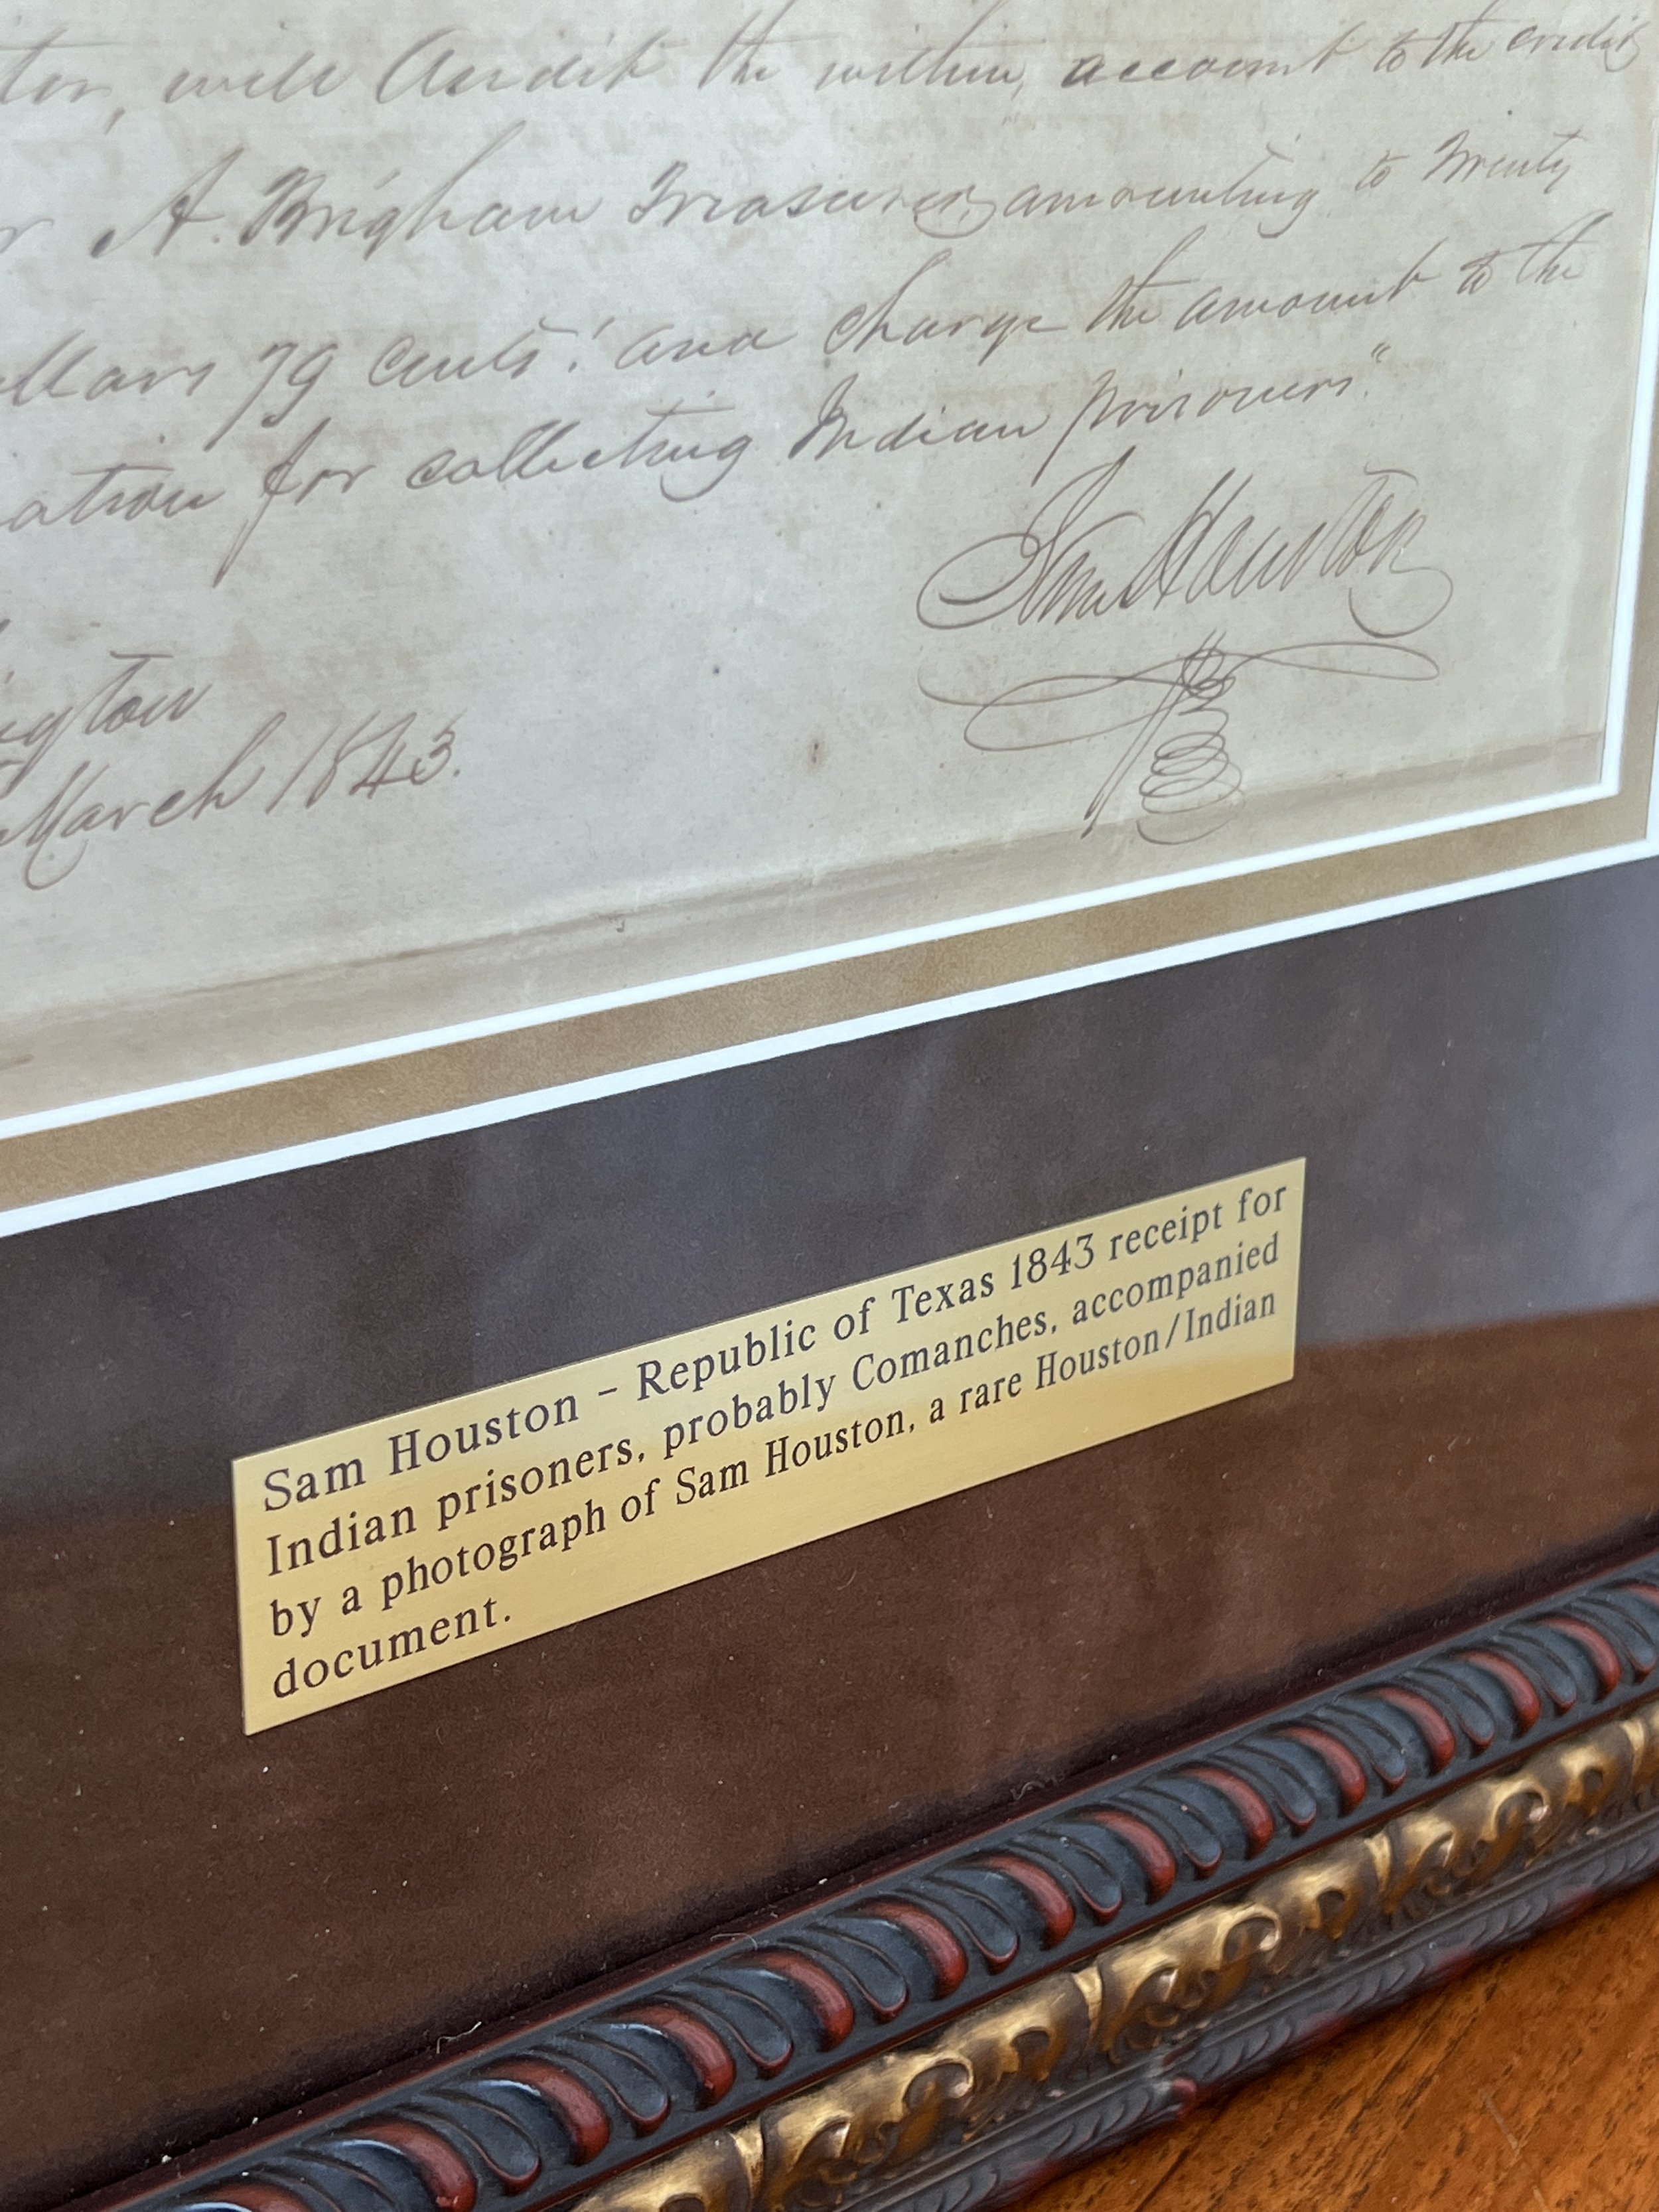 will Audit the within, account to the credit
A. Brigham Treasurer, amounting to Twenty
79 cents! and charge the amount to the
for collecting Indian prisoners."
Sam Houston
March 1843.
Sam Houston – Republic of Texas 1843 receipt for
Indian prisoners, probably Comanches, accompanied
by a photograph of Sam Houston, a rare Houston/Indian
document.